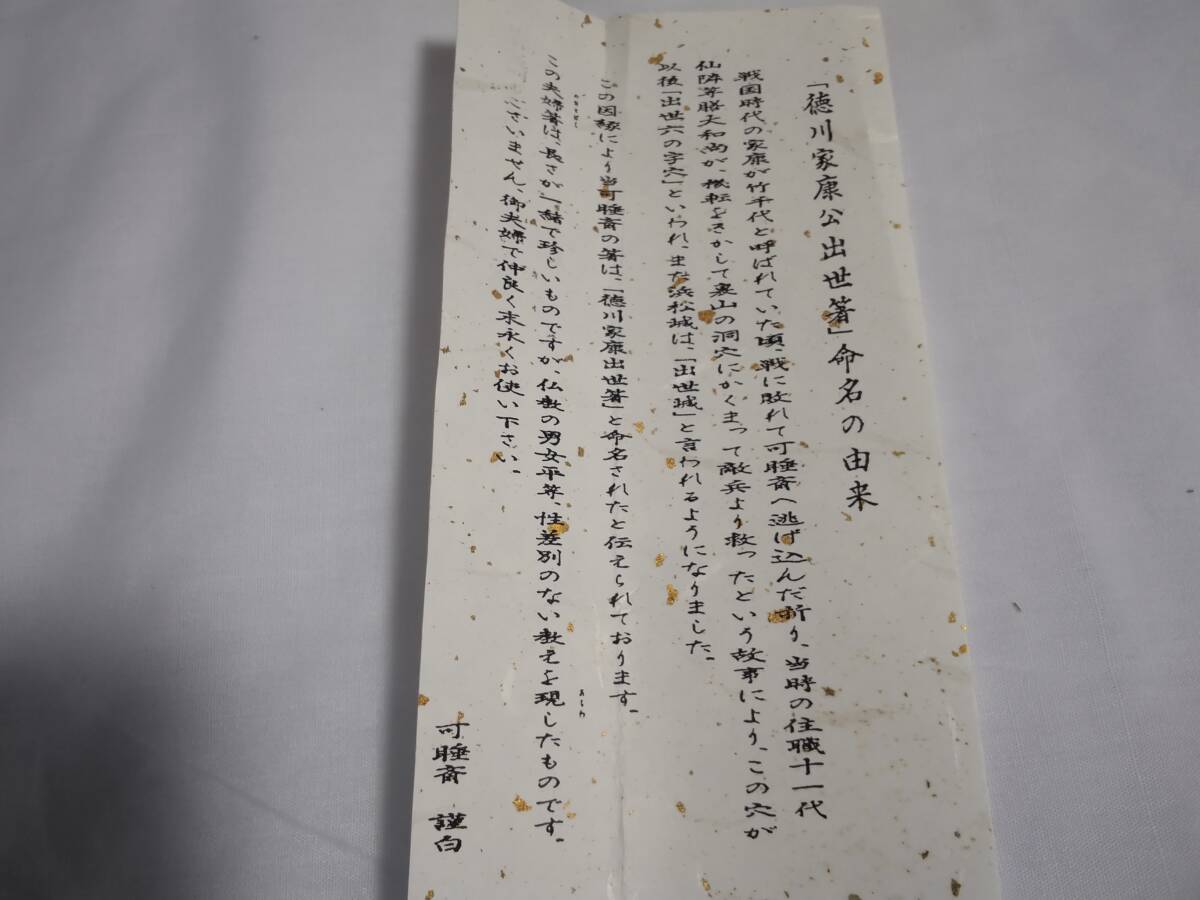 「徳川家康公出世箸」命名の由来
戦国時代の家康が竹千代と呼ばれていた頃、戦に敗れて可睡斎へ逃げ込んだ折り、当時の住職十一代
仙隣等膳大和尚が、機転をきかして裏山の洞穴にかくまって敵兵より救ったという故事により、この穴が
以後「出世六の字穴」といわれ、また浜松城は、「出世城」と言われるようになりました。
この因縁により当可睡斎の箸は、「徳川家康出世箸」と命名されたと伝えられております。
この夫婦箸は、長さが一緒で珍しいものですが、仏教の男女平等、性差別のない教えを現したものです。
ございません、御夫婦で仲良く末永くお使い下さい。
可睡斎 謹白